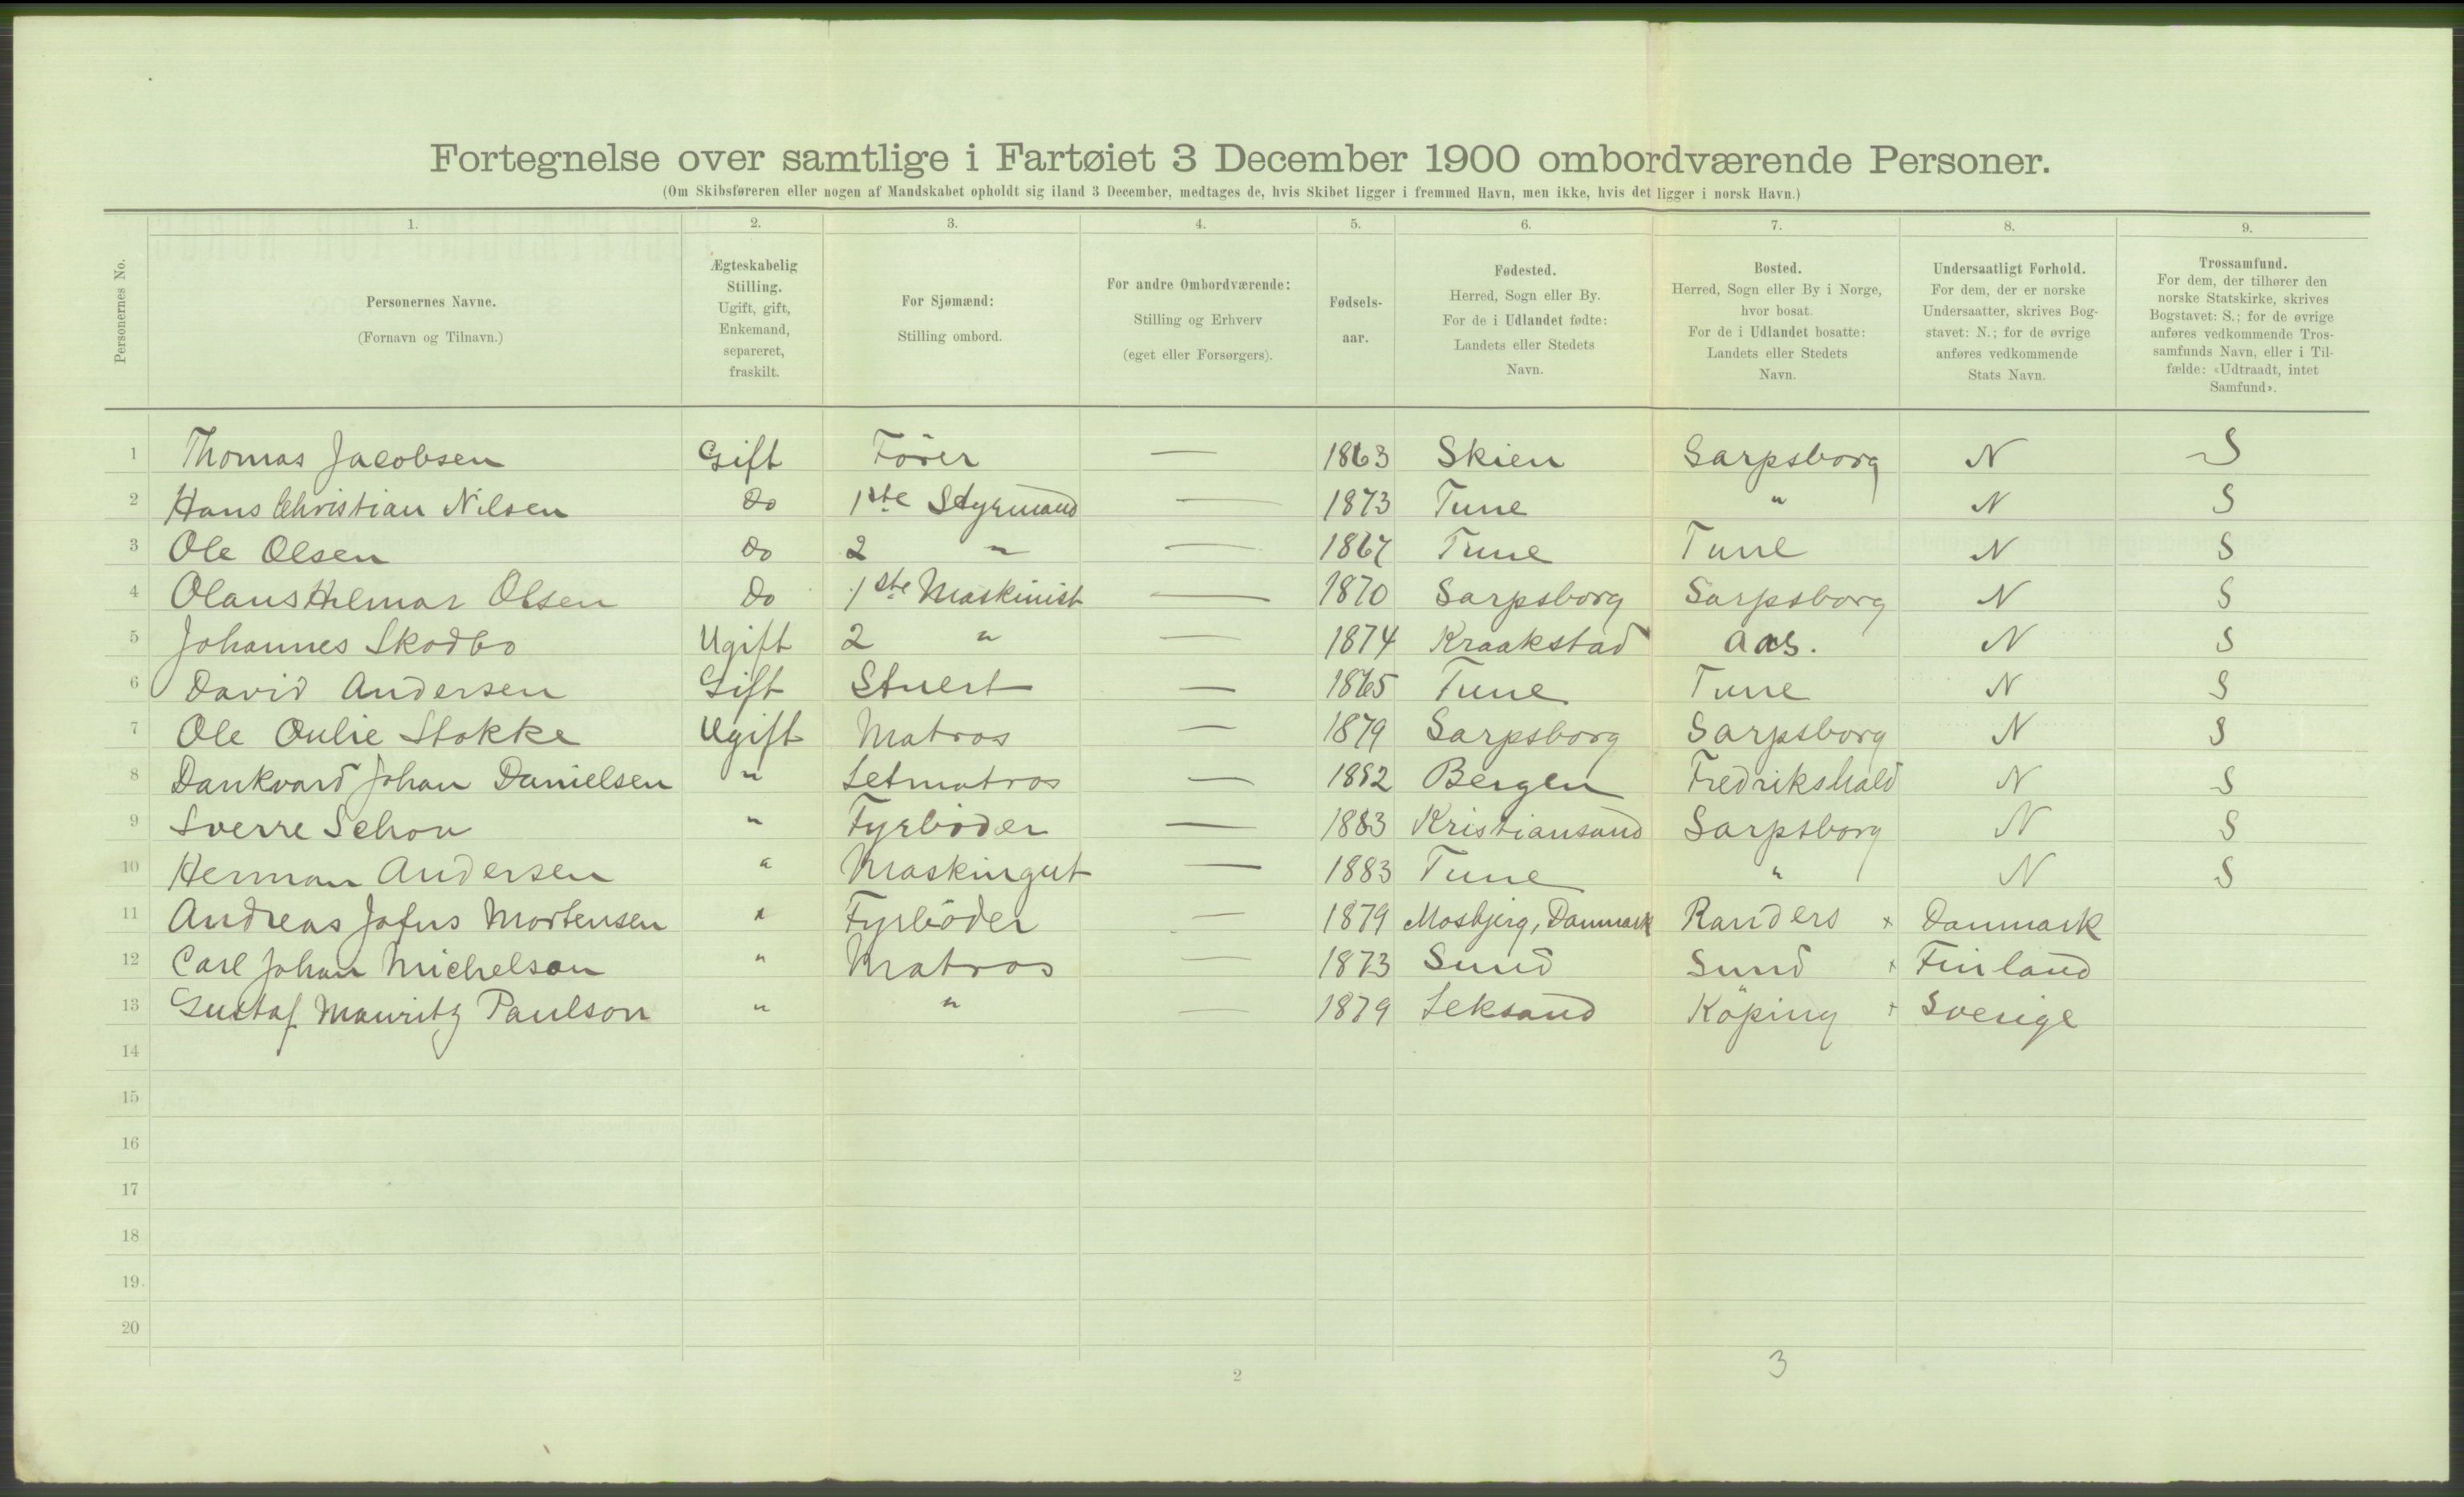 Fortegnelse over samtlige i Fartøiet 3 December 1900 ombordværende Personer.
(Om Skibsføreren eller nogen af Mandskabet opholdt sig iland 3 December, medtages de, hvis Skibet ligger i fremmed Havn, men ikke, hvis det ligger i norsk Havn.)
Personernes No.
1. 2. 3. 4. 5. 6. 7. 8. 9.
Personernes Navne.
(Fornavn og Tilnavn.)
Ægteskabelig
Stilling.
Ugift, gift,
Enkemand,
separeret,
fraskilt.
For Sjømænd:
Stilling ombord.
For andre Ombordværende:
Stilling og Erhverv
(eget eller Forsørgers).
Fødsels-
aar.
Fødested.
Herred, Sogn eller By.
For de i Udlandet fødte:
Landets eller Stedets
Navn.
Bosted.
Herred, Sogn eller By i Norge,
hvor bosat.
For de i Udlandet bosatte:
Landets eller Stedets
Navn.
Undersaatligt Forhold.
For dem, der er norske
Undersaatter, skrives Bog-
stavet: N.; for de øvrige
anføres vedkommende
Stats Navn.
Trossamfund.
For dem, der tilhører den
norske Statskirke, skrives
Bogstavet: S.; for de øvrige
anføres vedkommende Tros-
samfunds Navn, eller i Til-
fælde: «Udtraadt, intet
Samfund».
1 Thomas Jacobsen Gift Förer — 1863 Skien Sarpsborg N S
2 Hans Christian Nilsen do 1ste Styrmand — 1873 Tune " N S
3 Ole Olsen do 2 " — 1867 Tune Tune N S
4 Olaus Hilmar Olsen do 1ste Maskinist — 1870 Sarpsborg Sarpsborg N S
5 Johannes Skodbo Ugift 2 " — 1874 Kraakstad Aas. N S
6 David Andersen Gift Stuert — 1865 Tune Tune N S
7 Ole Oulie Stokke Ugift Matros — 1879 Sarpsborg Sarpsborg N S
8 Dankvard Johan Danielsen " Letmatros — 1882 Bergen Fredrikshald N S
9 Sverre Schou " Fyrböder — 1883 Kristiansand Sarpsborg N S
10 Herman Andersen " Maskingut — 1883 Tune " N S
11 Andreas Mortensen " Fyrböder — 1879 Mosbjerg, Danmark Randers x Danmark
12 Carl Johan Michelson " Matros — 1873 Sund Sund x Finland
13 Gustaf Mauritz Paulson " " — 1879 Leksand Köping + Sverige
14
15
16
17
18
19.
20
2
3